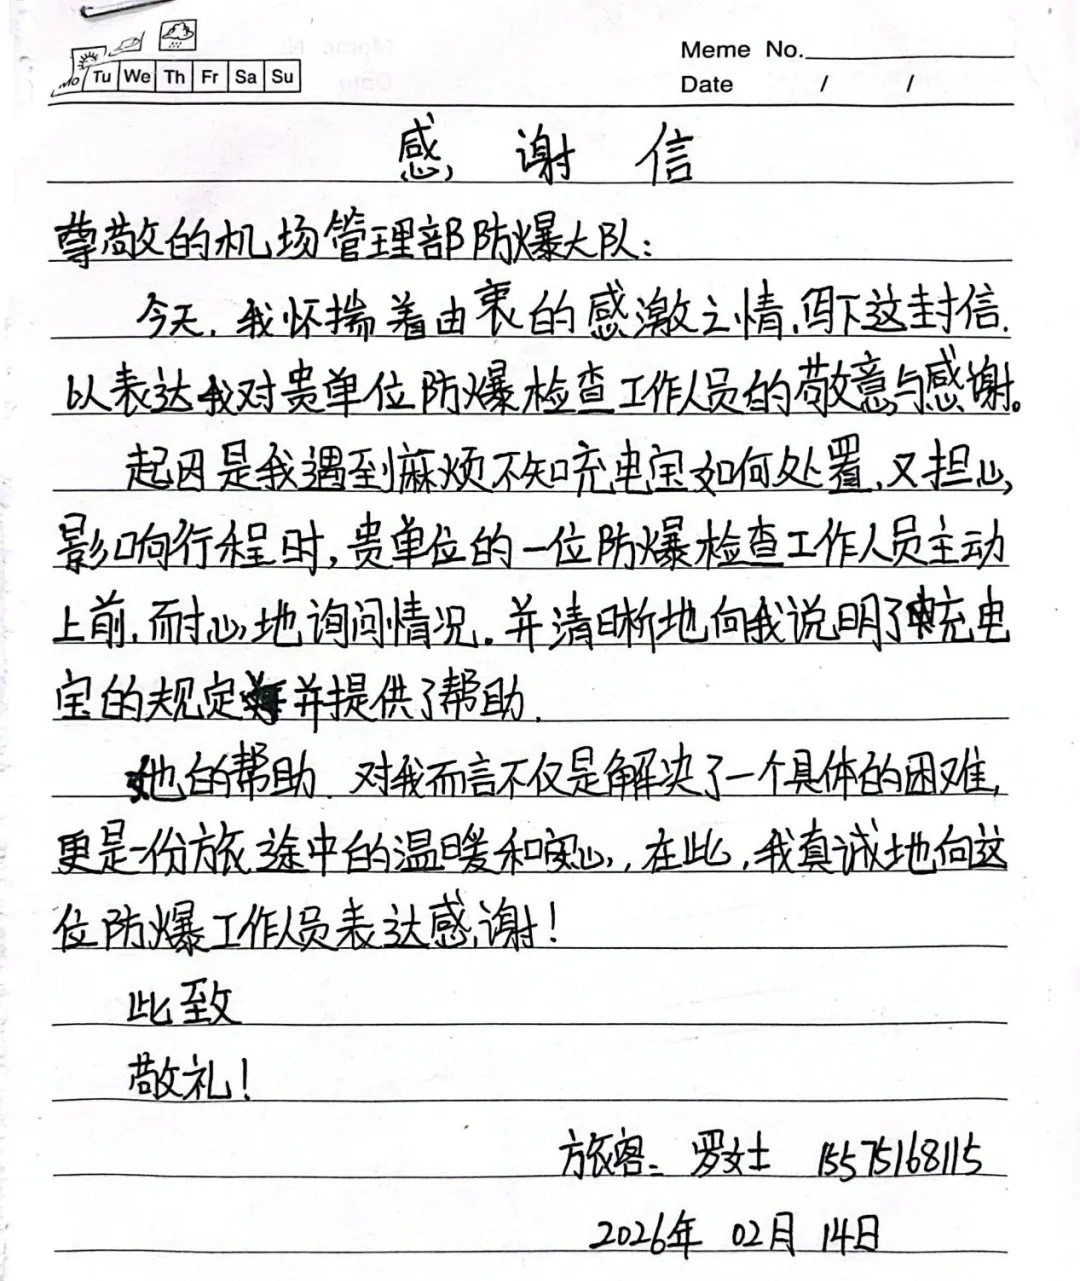 Meme No.
Mo Tu We Th Fr Sa Su
Date / /
感谢信
尊敬的机场管理部防爆大队：
今天，我怀揣着由衷的感激之情，写下这封信，
以表达我对贵单位防爆检查工作人员的敬意与感谢。
起因是我遇到麻烦不知充电宝如何处置，又担心
影响行程时，贵单位的一位防爆检查工作人员主动
上前，耐心地询问情况。并清晰地向我说明了充电
宝的规定并提供了帮助。
他的帮助，对我而言不仅是解决了一个具体的困难，
更是一份旅途中的温暖和安心，在此，我真诚地向这
位防爆工作人员表达感谢！
此致
敬礼！
旅客：罗女士 15575168115
2026年 02月 14日